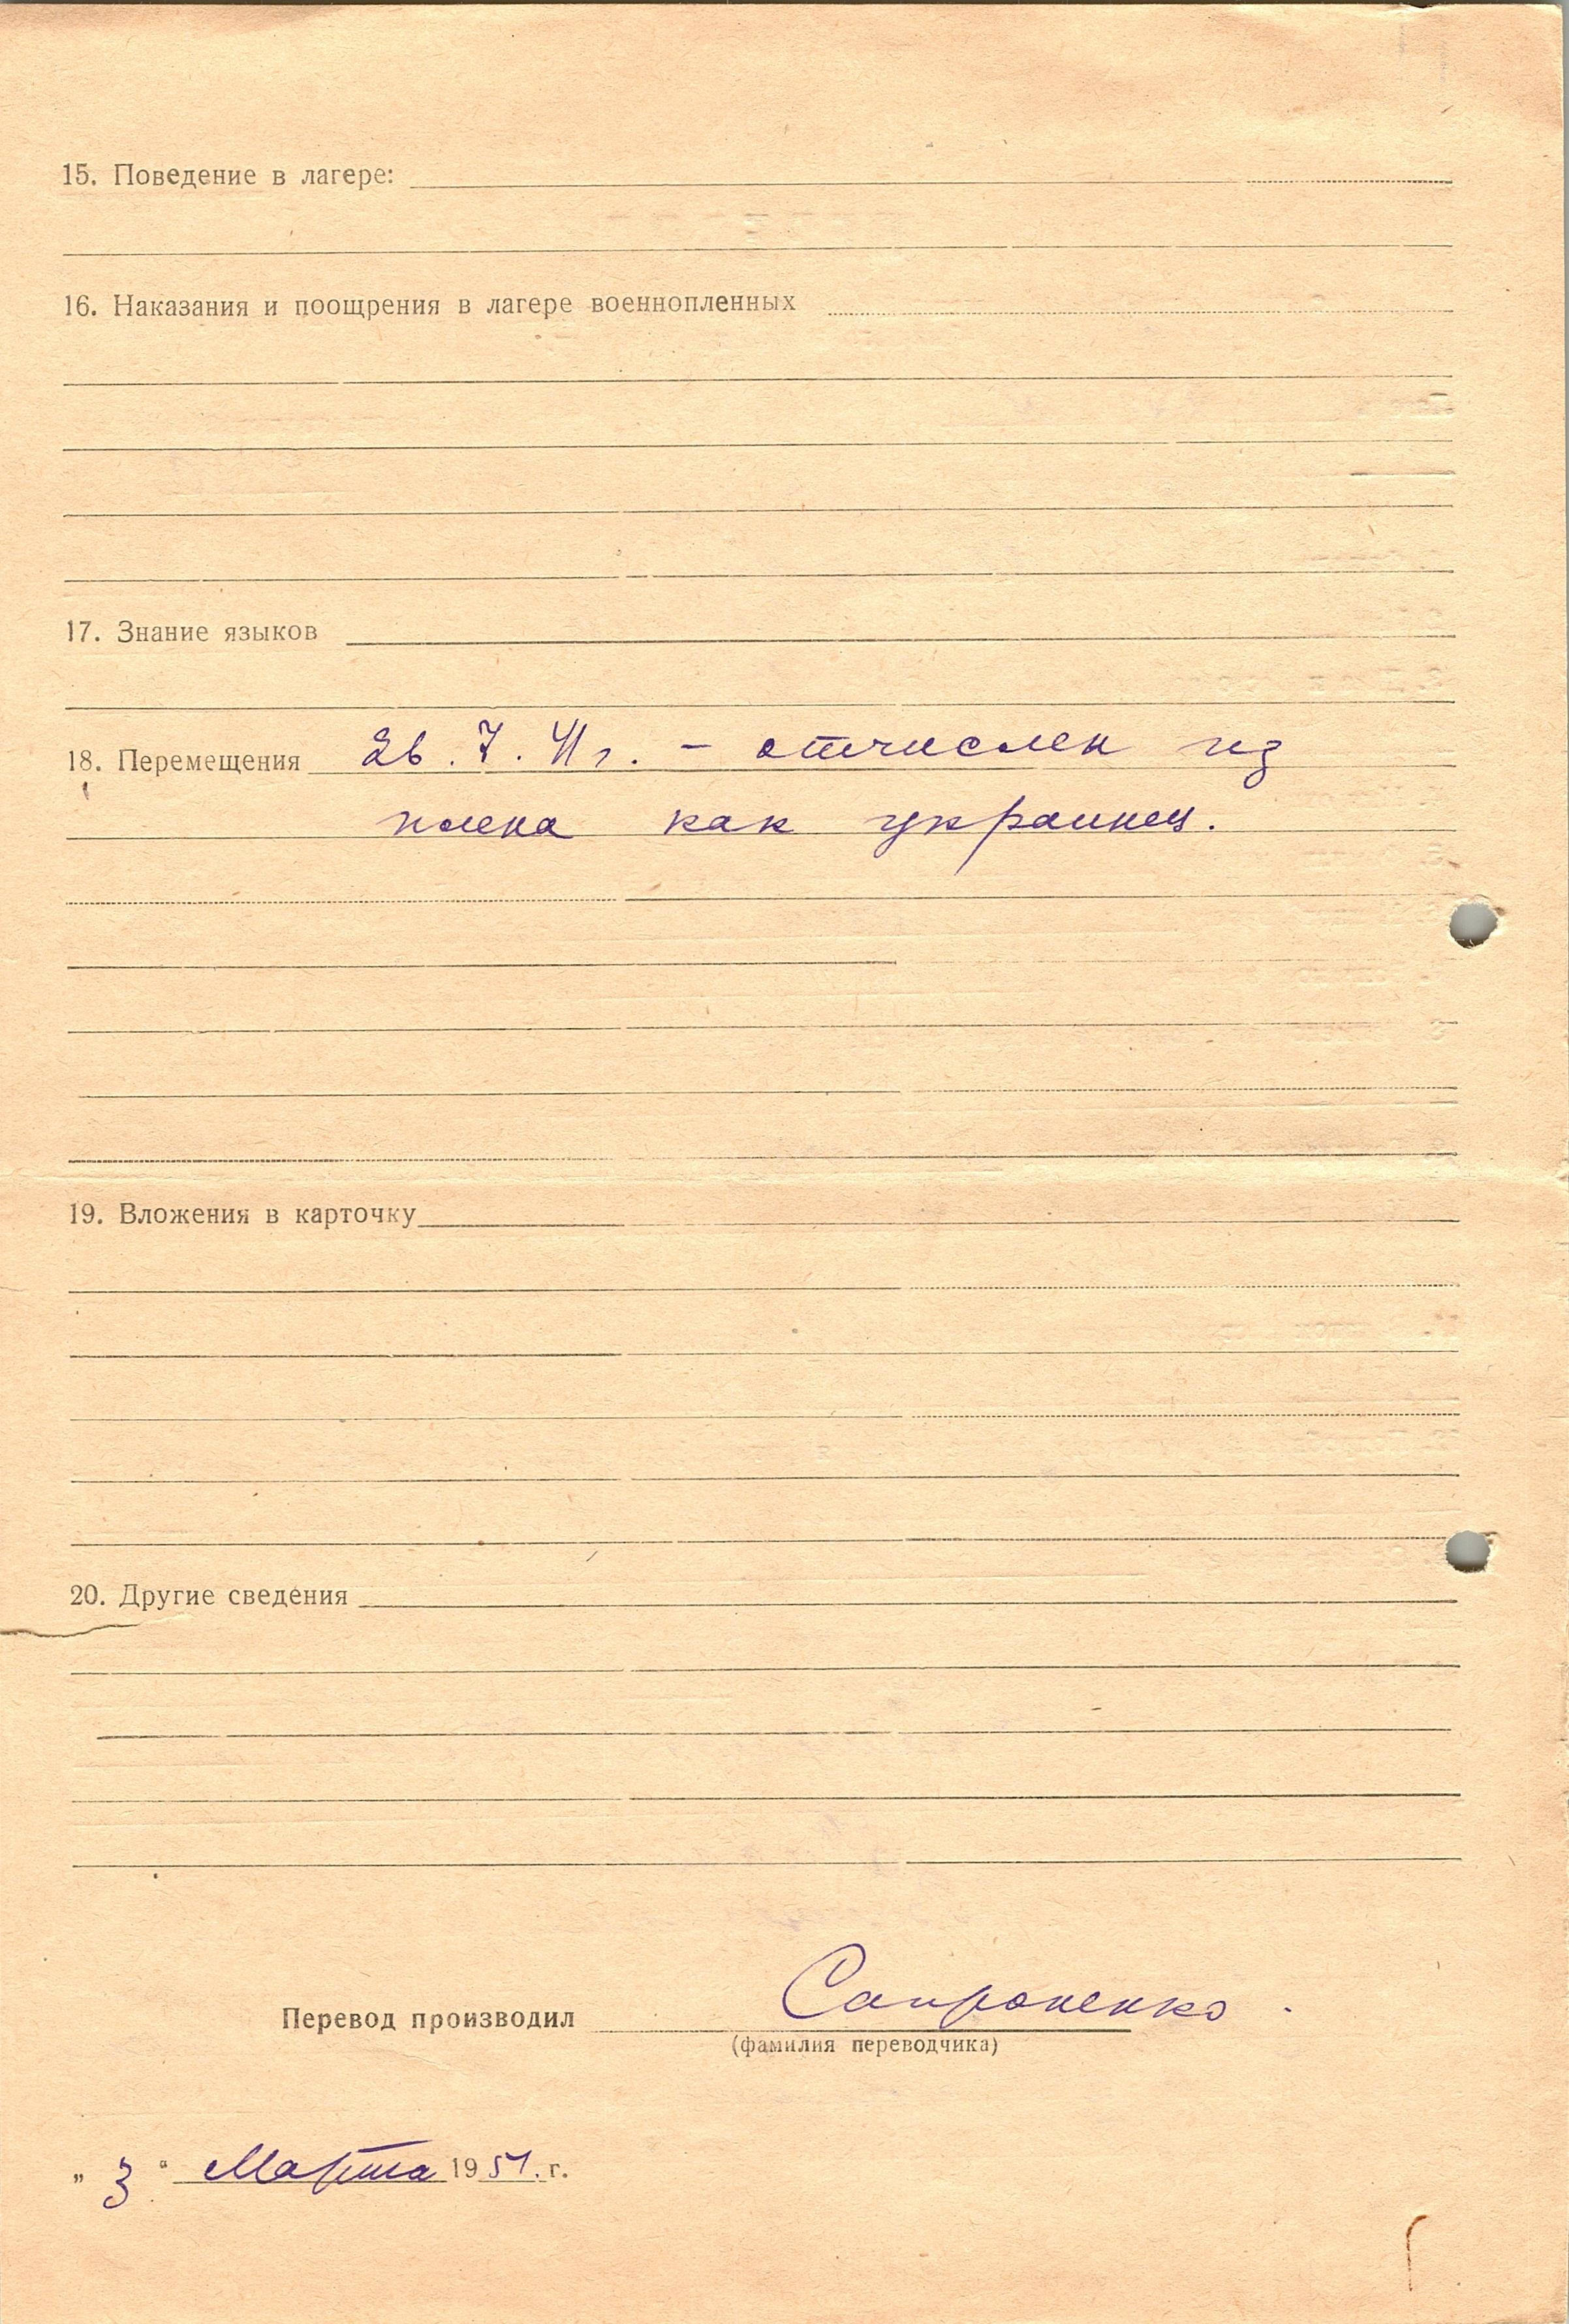 15. Поведение в лагере:
16. Наказания и поощрения в лагере военнопленных
17. Знание языков
18. Перемещения 26.7.41г. – отчислен из
плена как украинец.
19. Вложения в карточку
20. Другие сведения
Перевод производил Сапроненко
(фамилия переводчика)
„3“ Марта 1951.г.